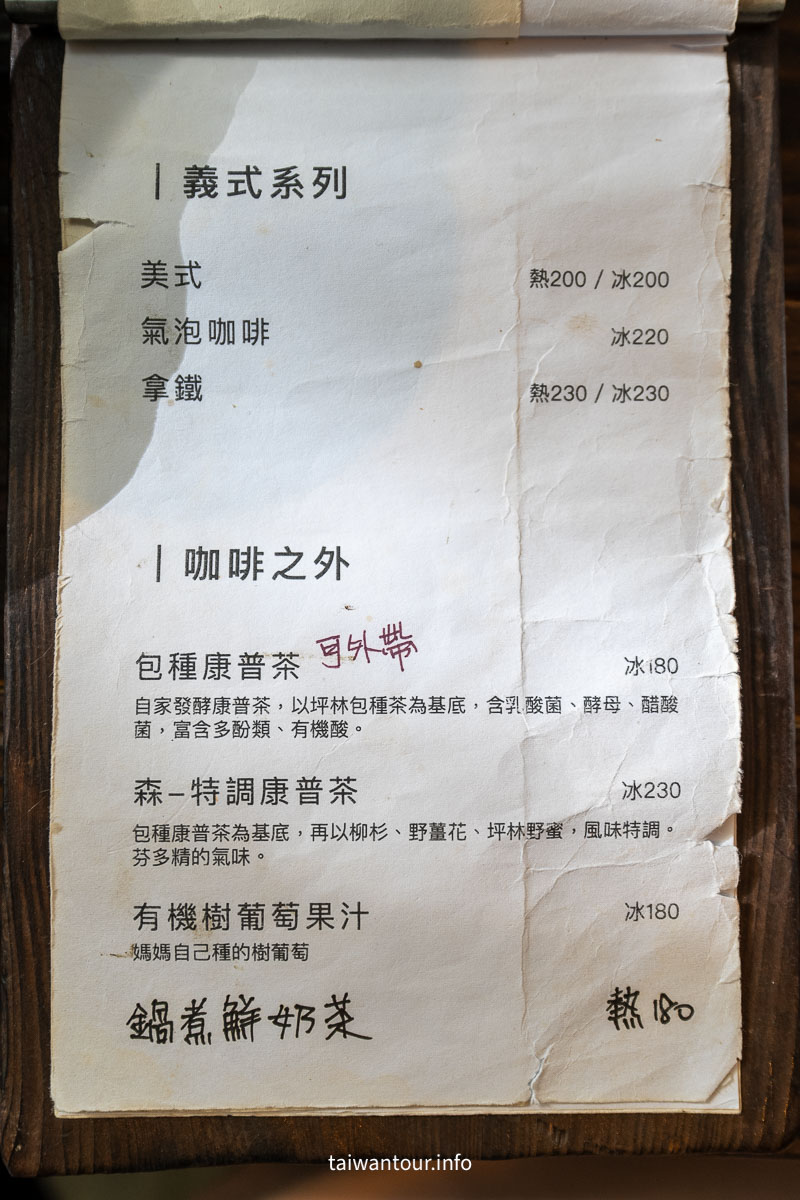 | 義式系列
美式 熱200 / 冰200
氣泡咖啡 冰220
拿鐵 熱230 / 冰230
| 咖啡之外
包種康普茶 可外帶 冰180
自家發酵康普茶，以坪林包種茶為基底，含乳酸菌、酵母、醋酸
菌，富含多酚類、有機酸。
森–特調康普茶 冰230
包種康普茶為基底，再以柳杉、野薑花、坪林野蜜，風味特調。
芬多精的氣味。
有機樹葡萄果汁 冰180
媽媽自己種的樹葡萄
鍋煮鮮奶茶 熱180
taiwantour.info